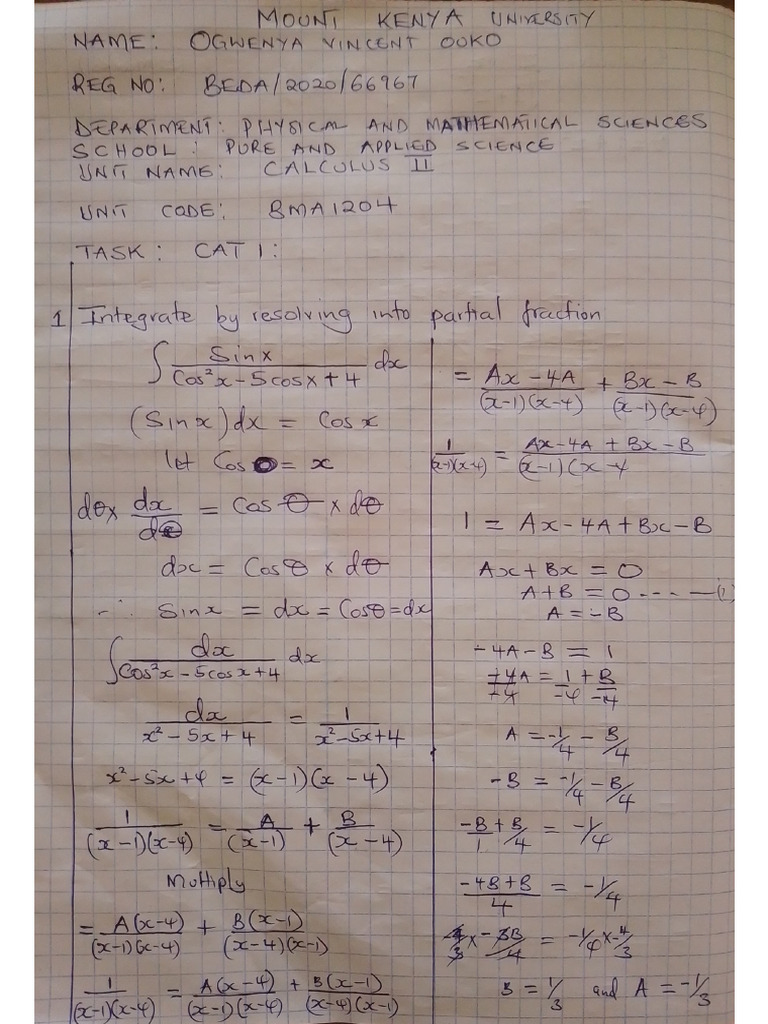 MOUNT KENYA UNIVERSITY
NAME: OGWENYA VINCENT OOKO
REG NO: BEDA/2020/66967
DEPARTMENT: PHYSICAL AND MATHEMATICAL SCIENCES
SCHOOL: PURE AND APPLIED SCIENCE
UNIT NAME: CALCULUS II
UNIT CODE: BMA1204
TASK: CAT 1:
1 Integrate by resolving into partial fraction
∫ Sin x / (Cos²x - 5cosx + 4) dx
(Sin x) dx = Cos x
let Cos θ = x
dθ x dx/dθ = Cos θ x dθ
dx = Cos θ x dθ
∴ Sin x = dx = Cosθ = dx
∫ dx / (Cos²x - 5cosx + 4) dx
dx / (x² - 5x + 4) = 1 / (x² - 5x + 4)
x² - 5x + 4 = (x - 1)(x - 4)
1 / (x-1)(x-4) = A / (x-1) + B / (x-4)
Multiply
= A(x-4) / (x-1)(x-4) + B(x-1) / (x-4)(x-1)
1 / (x-1)(x-4) = A(x-4) / (x-1)(x-4) + B(x-1) / (x-4)(x-1)
= Ax - 4A / (x-1)(x-4) + Bx - B / (x-1)(x-4)
1 / (x-1)(x-4) = Ax - 4A + Bx - B / (x-1)(x-4
1 = Ax - 4A + Bx - B
Ax + Bx = 0
A + B = 0 ---- (1)
A = -B
-4A - B = 1
-4A / -4 = 1 / -4 + B / -4
A = -1/4 - B/4
-B = -1/4 - B/4
-B/1 + B/4 = -1/4
-4B + B / 4 = -1/4
4/3 x -3B/4 = -1/4 x -4/3
B = 1/3 and A = -1/3